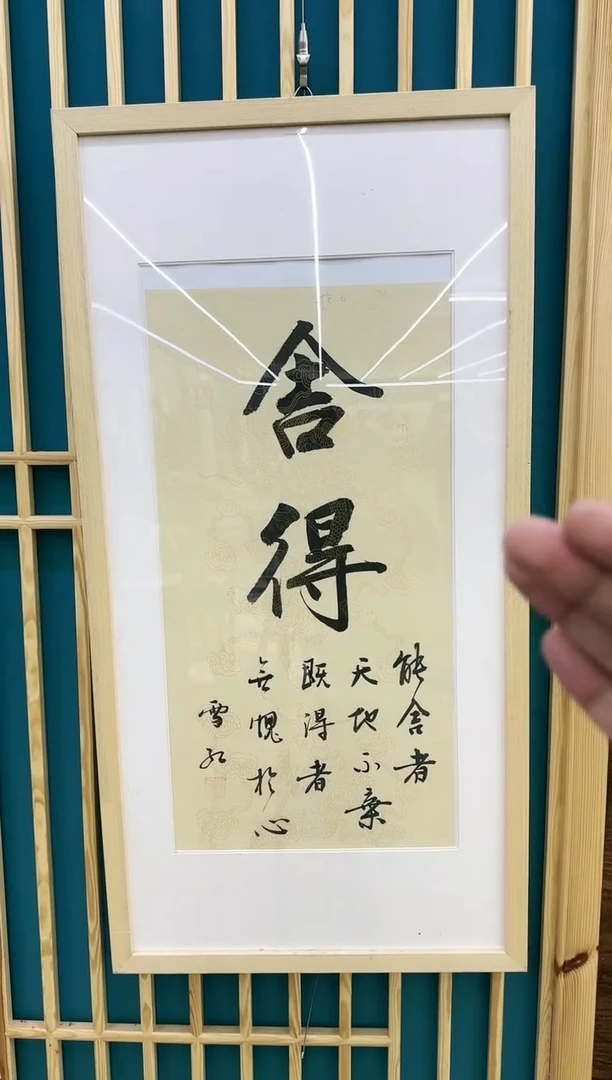 舍
得
能舍者
天地不棄
既得者
无愧於心
雪紅